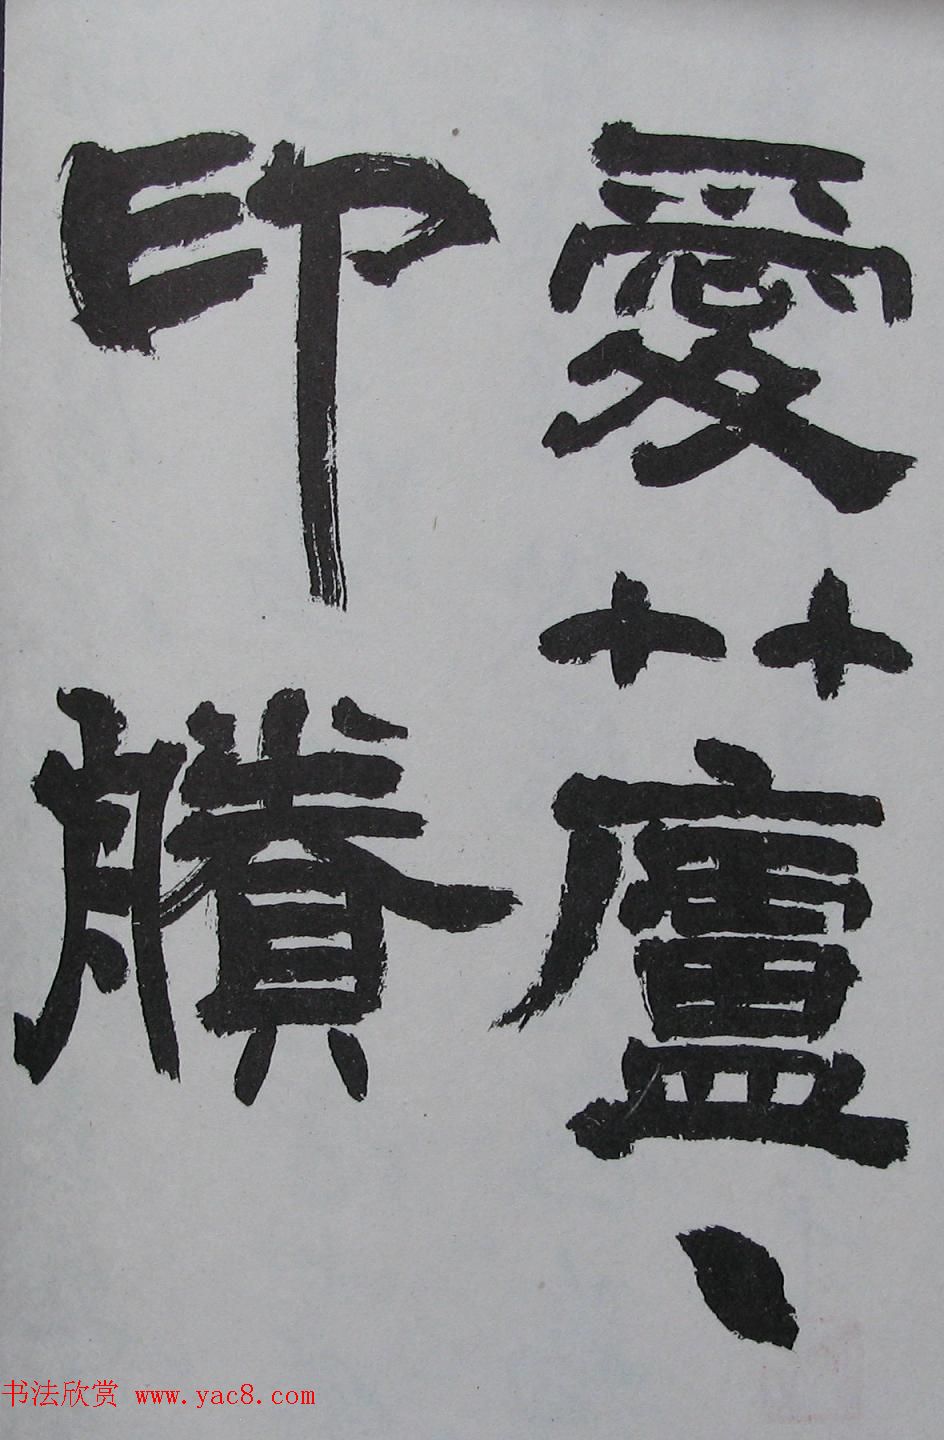 愛蘆、
印賸
书法欣赏 www.yac8.com